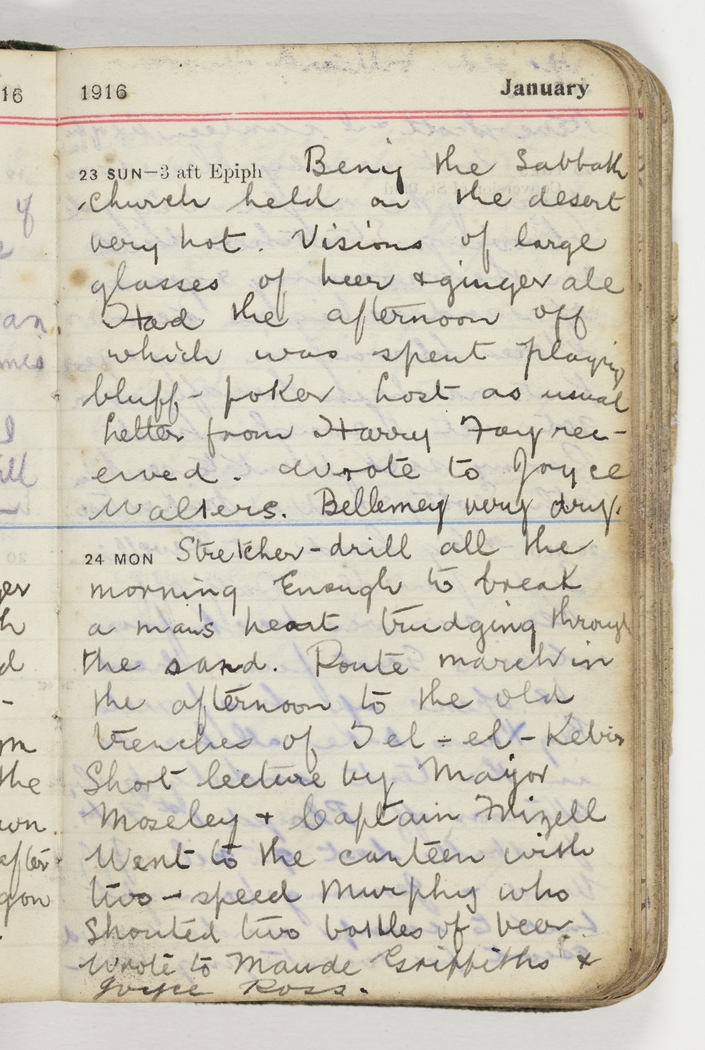 16
1916 January
23 SUN—3 aft Epiph Being the Sabbath
church held on the desert
very hot. Visions of large
glasses of beer & ginger ale
Had the afternoon off
which was spent playing
bluff-poker host as usual
Letter from Harry Fay rec-
eived. wrote to Joyce
Walters. Bellemey very dry.
24 MON Stretcher-drill all the
morning Enough to break
a man's heart trudging through
the sand. Route march in
the afternoon to the old
trenches of Tel-el-Kebir
Short lecture by Major
Moseley & Captain Frizell
Went to the canteen with
two-speed Murphy who
Shouted two bottles of beer.
Wrote to Maude Griffiths &
Joyce Ross.